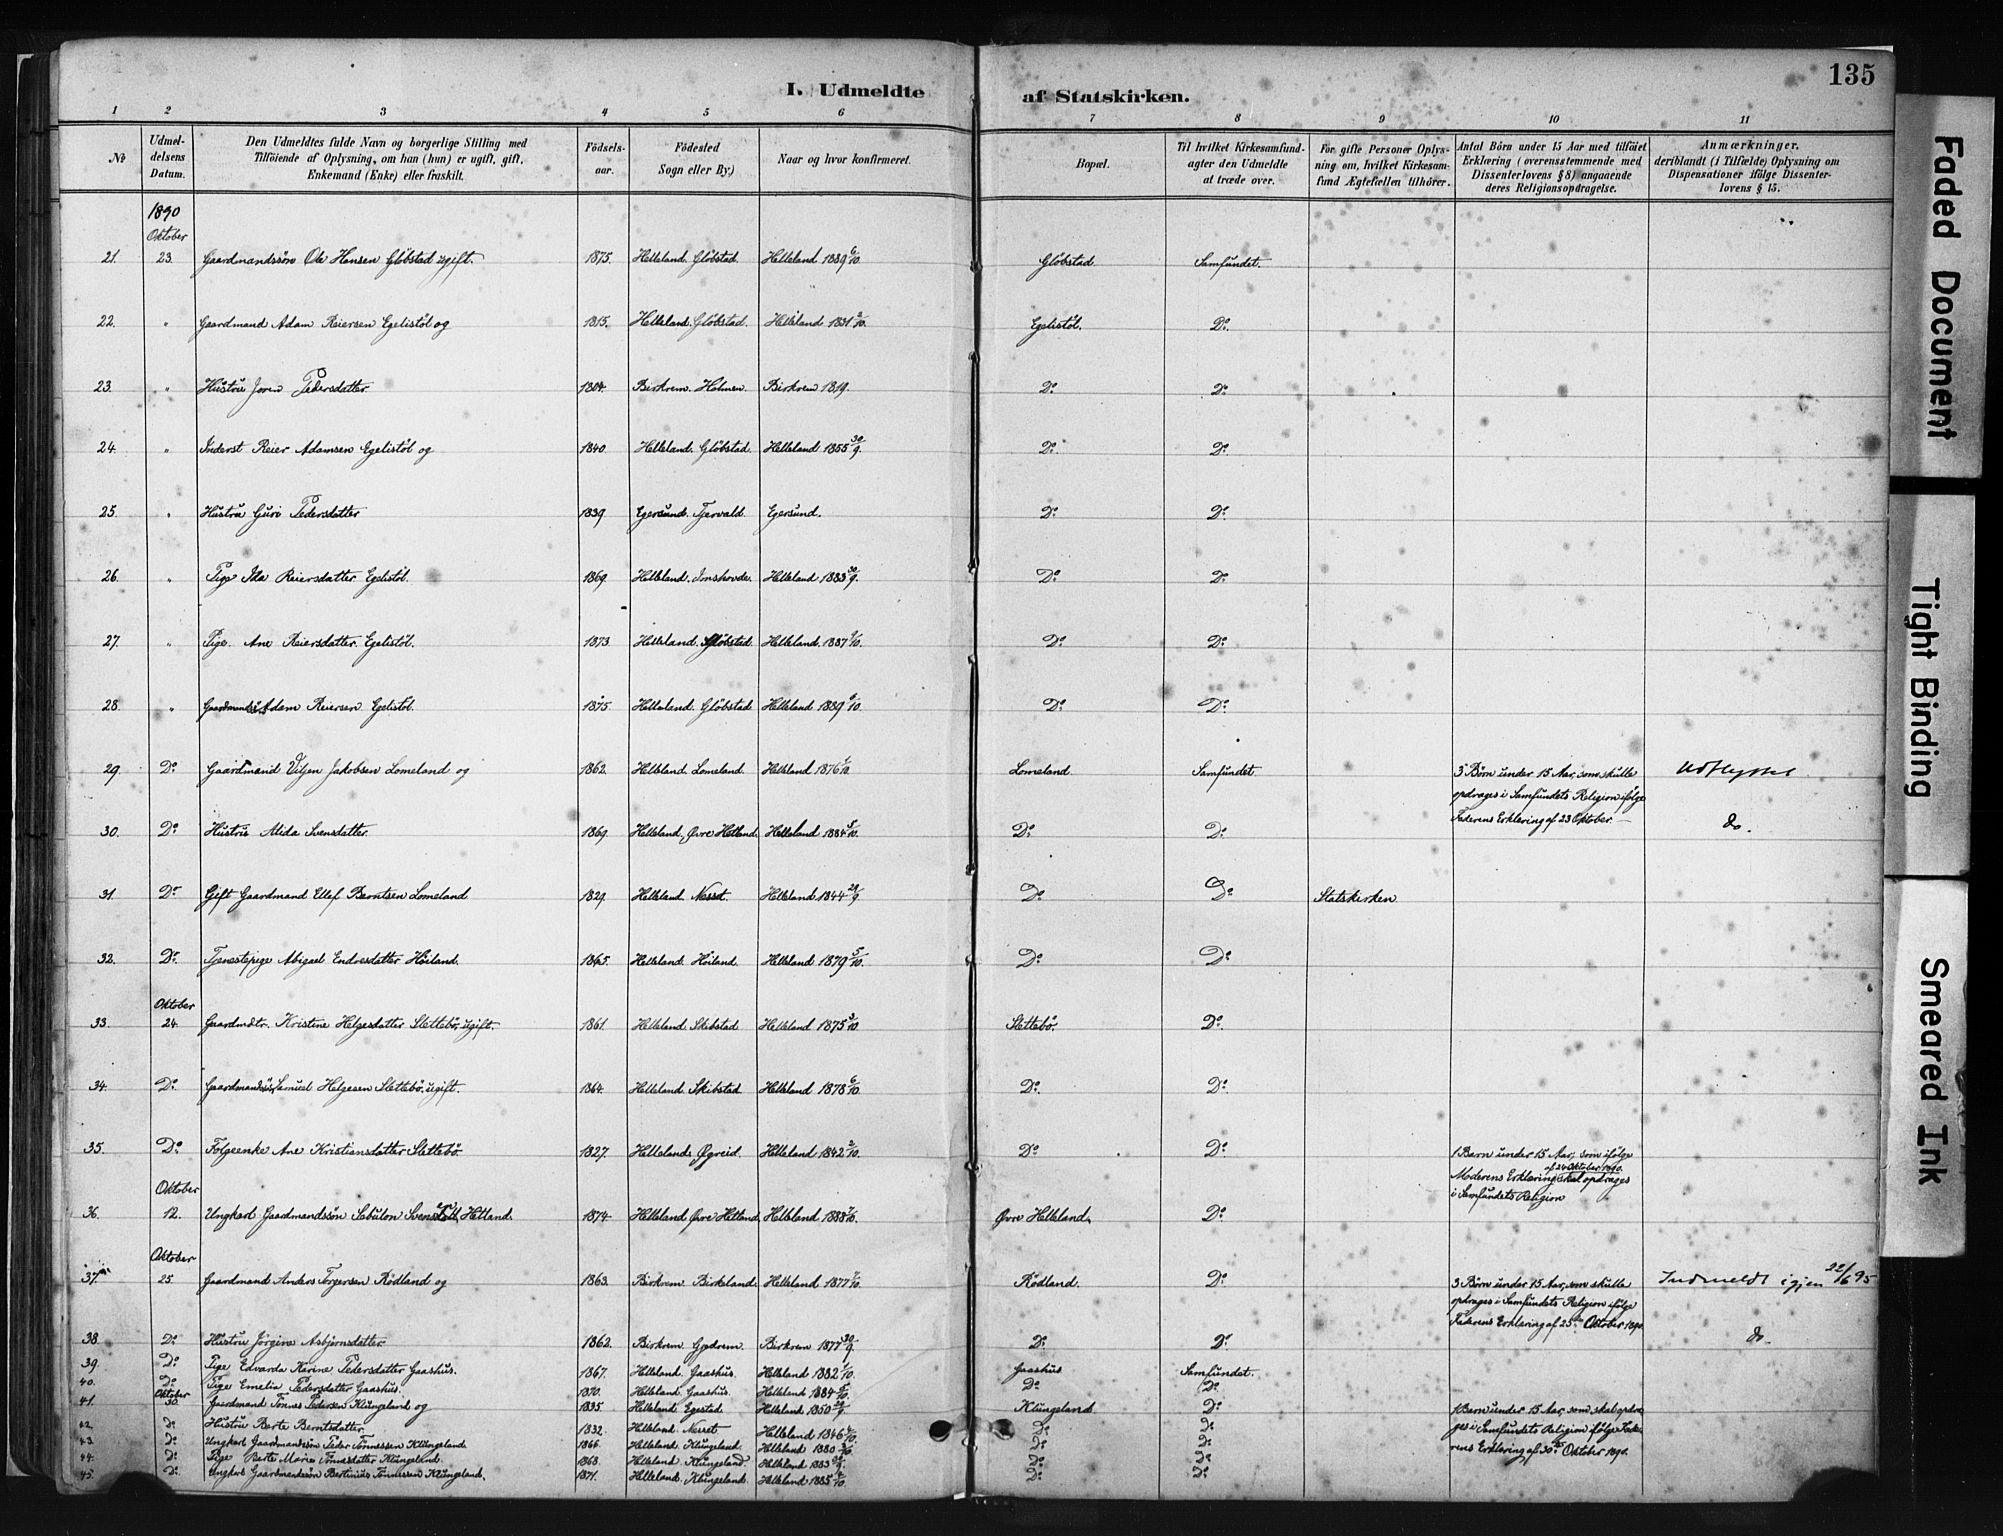 I. Udmeldte af Statskirken. 135
1 2 3 4 5 6 7 8 9 10 11
№ | Udmeldelsens Datum. | Den Udmeldtes fulde Navn og borgerlige Stilling med Tilföiende af Oplysning, om han (hun) er ugift, gift, Enkemand (Enke) eller fraskilt. | Födselsaar. | Födested Sogn eller By.) | Naar og hvor konfirmeret. | Bopæl. | Til hvilket Kirkesamfund agter den Udmeldte at træde over. | For gifte Personer Oplysning om, hvilket Kirkesamfund Ægtefællen tilhörer. | Antal Börn under 15 Aar med tilföiet Erklæring (overensstemmende med Dissenterlovens § 8) angaaende deres Religionsopdragelse. | Anmærkninger, deriblandt (i Tilfælde) Oplysning om Dispensationer ifölge Dissenterlovens § 15.
1890
Oktober
21. 23. Gaardmandssön Ole Hansen Glöbstad ugift. 1875. Helleland Glöbstad. Helleland 1889 6/10. Glöbstad Samfundet.
22. " Gaardmand Adam Reiersen Egelistöl og 1815. Helleland Glöbstad. Helleland 1831 2/10. Egelistöl. Do.
23. " Hustru Joren Pedersdatter 1804. Birkrem. Holmen. Birkrem 1819. Do. Do.
24. " Inderst Reier Adamsen Egelistöl og 1840. Helleland. Glöbstad. Helleland 1855 30/9. Do. Do.
25. " Hustru Guri Pedersdatter 1839 Egersund. Tjervald. Egersund. Do. Do.
26. " Pige Ida Reiersdatter Egelistöl. 1869. Helleland. Helleland 1883 30/9. Do. Do.
27. " Pige. Ane Reiersdatter Egelistöl. 1873. Helleland Glöbstad. Helleland 1887 Do. Do.
28. " Adam Reiersen Egelistöl. 1875. Helleland. Glöbstad Helleland 1889 6/10. Do. Do.
29. Do. Gaardmand Viljen Jakobsen Lomeland og 1862. Helleland Lomeland. Helleland 1876 1/10. Lomeland Samfundet 3 Börn under 15 Aar, som skulle Udflyttet
opdrages i Samfundets Religion ifölge
Faderens Erklæring af 23 Oktober.
30. Do. Hustru Alida Svensdatter. 1869. Helleland, Øvre Hetland Helleland 1884 5/10. Do. Do. do.
31. Do. Gift Gaardmand Ellef Berntsen Lomeland 1829. Helleland Nesset. Helleland 1844 29/9. Do. Do. Statskirken
32. Do. Tjenestepige Abigael Endresdatter Höiland. 1865. Helleland Höiland. Helleland 1879 5/10. Do. Do.
Oktober
33. 24. Gaardmdtr. Kristine Helgesdatter Slettebö, ugift. 1861. Helleland Skibstad Helleland 1875 3/10. Slettebö. Do.
34. Do. Gaardmandssön Samuel Helgesen Slettebö. ugift. 1864. Helleland Skibstad Helleland 1878 6/10. Do. Do.
35. Do. Folgeenke Ane Kristiansdatter Slettebö 1827. Helleland Øgreid. Helleland 1842 2/10. Do. Do. 1 Barn under 15 Aar, som ifölge
Moderens Erklæring af 24 Oktober 1890. skal opdrages
i Samfundets Religion
Oktober
36. 12. Ungkarl Gaardmandssön Sebulon Hetland. 1874. Helleland Øvre Hetland. Helleland 1888 7/10. Øvre Helleland. Do.
Oktober
37. 25. Gaardmand Anders Torgersen Rödland og 1863. Birkrem Birkeland. Helleland 1877 7/10. Rödland. Do. 3 Börn under 15 Aar, som skulle Indmeldt igjen 22/6 95
opdrages i Samfundets Religion ifölge
Faderens Erklæring af 25de Oktober 1890.
38. Do. Hustru Jörgine Asbjörnsdatter. 1862. Birkrem Birkrem 1877 30/9. Do. Do. do.
39. Do. Pige Edvarda Karine Pedersdatter Gaashus. 1867. Helleland. Gaashus. Helleland 1882 1/10. Gaashus Samfundet.
40. Do. Pige Emelia Pedersdatter Gaashus. 1870. Helleland Gaashus. Helleland 1884 5/10. Do. Do.
Oktober
41. 30. Gaardmand Tönnes Pedersen Klungeland, og 1835. Helleland Egestad. Helleland 1850 29/9. Klungeland Do. 1 Barn under 15 Aar, som skal opdra-
ges i Samfundets Religion ifölge Fade-
rens Erklæring af 30te Oktober 1890.
42. Do. Hustru Berte Berntsdatter. 1832. Helleland Nesset Helleland 1846 4/10. Do. Do.
43. Do. Ungkarl Gaardmandssön Peder Tönnessen Klungeland 1866. Helleland Klungeland. Helleland 1880 3/10. Do. Do.
44. Do. Pige Berte Marie Tönnesdatter Klungeland. 1868. Helleland Klungeland. Helleland 1883 Do. Do.
45. Do. Ungkarl Gaardmandssön Bertinius Tönnessen Klungeland. 1871. Helleland Klungeland. Helleland 1885 4/10. Do. Do.
Faded Document
Tight Binding
Smeared Ink